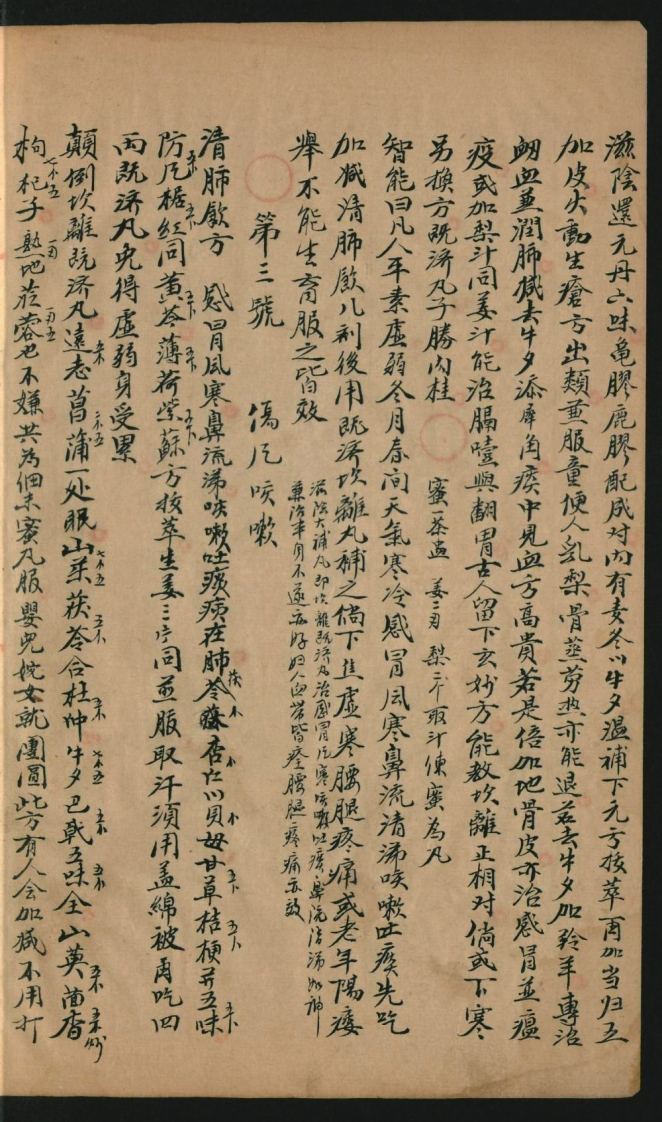 滋陰還元丹六味龜膠鹿膠配成对內有麦冬川牛夕温補下元方拔萃再加当归五
加皮火動生瘡方出類並服童便人乳梨骨蒸劳热亦能退若去牛夕加羚羊專治
衂血並潤肺減去牛夕添犀角痰中見血方高貴若是倍加地骨皮亦治感冒並瘟
疫或加梨汁同姜汁能治膈噎與翻胃古人留下玄妙方能教坎離正相对倘或下寒
另換方既济丸子勝肉桂 蜜一茶盅 姜二刄 梨三个取汁煉蜜為丸
智能曰凡人平素虛弱冬月春间天氣寒冷感冒风寒鼻流清涕咳嗽吐痰先吃
加减清肺飲八剂後用既济坎離丸補之倘下焦虛寒腰腿疼痛或老年陽痿
舉不能生育服之皆效
滋陰大補丸即坎離既济丸治感冒风寒咳嗽吐痰鼻流清涕如神
藥治半身不遂亦好妇人血劳皆痊腰腿疼痛亦效
第三號 傷风咳嗽
清肺飲方 感冒风寒鼻流涕咳嗽吐痰痰在肺茯苓杏仁川贝母甘草桔梗并五味
防风橘红同黃芩薄荷紫蘇方拔萃生姜三片同並服取汗須用盖綿被再吃四
丙既济丸免得虛弱身受累
顛倒坎離既济丸遠志菖蒲一处眠山药茯苓合杜仲牛夕巴戟五味全山萸茴香
枸杞子熟地苁蓉也不嫌共为细末蜜丸服嬰兒姹女就團圓此方有人会加减不用打